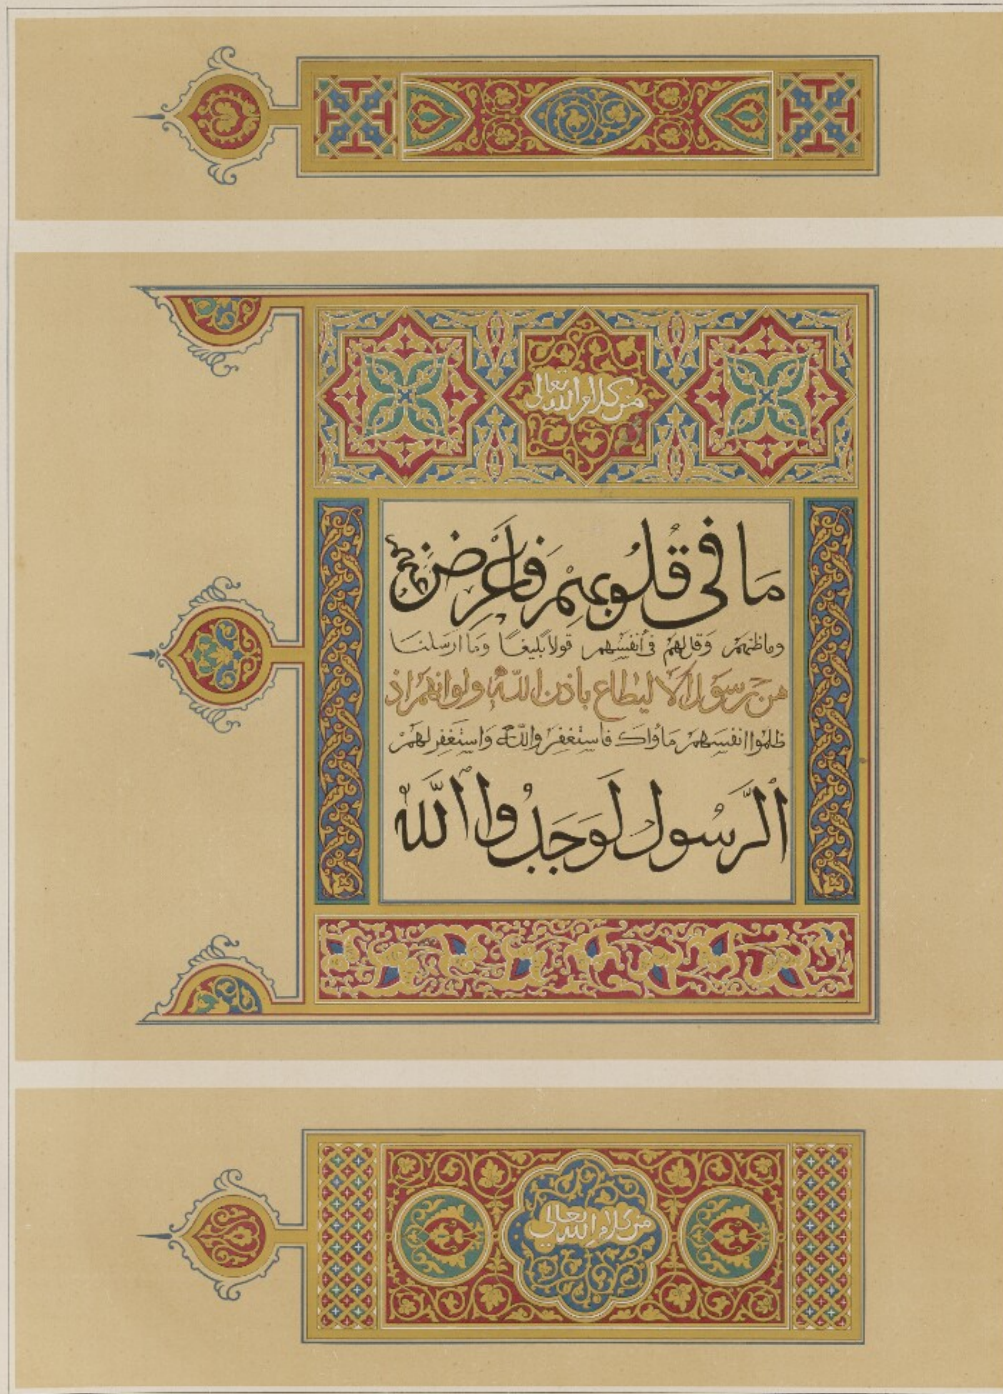 من كلام الله تعالى
مَا فى قُلُوبهِمْ فَاَعْرِضْ عنهم
وماظنهم وَقالهم فى انفسهم قولاً بليغاً وَمَا ارسَلنا
من رسول الا ليطاع باذن الله ولو انهم اذ
ظلموا انفسهم ماؤاك فاستغفروالله وَاستغفر لهم
الرَّسُول لَوَجَدُوا الله
من كلام الله تعالى